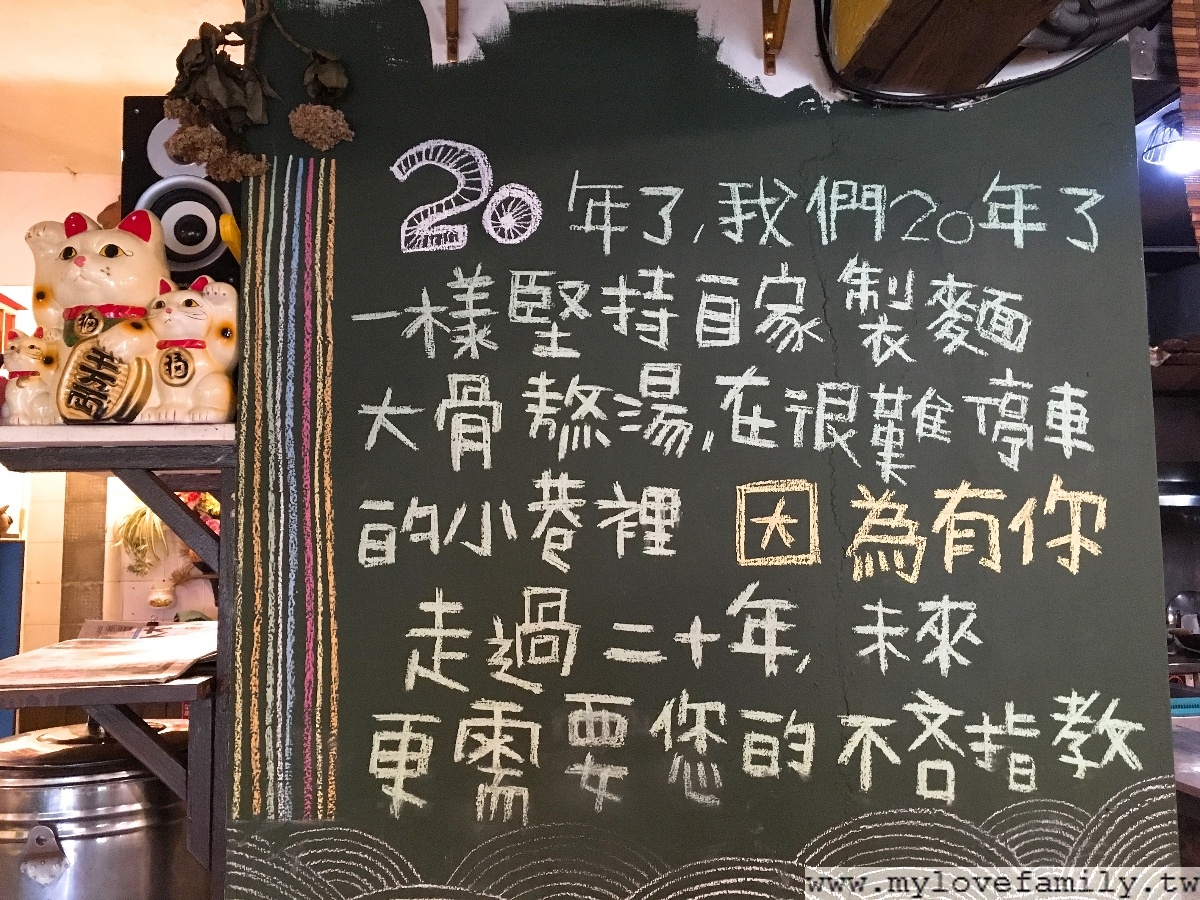 20年了,我們20年了
一樣堅持自家製麵
大骨熬湯,在很難停車
的小巷裡 因為有你
走過二十年, 未來
更需要您的不吝指教
www.mylovefamily.tw